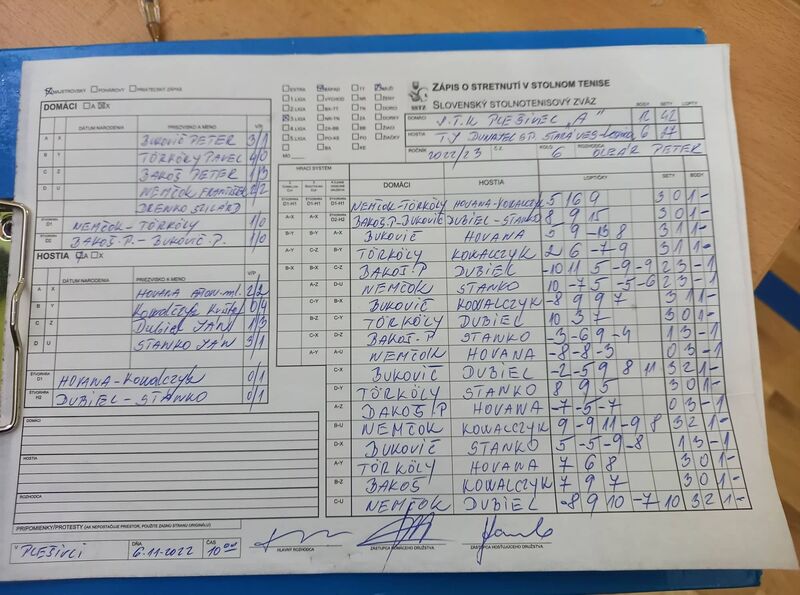 MAJSTROVSKÝ POHÁROVÝ PRIATEĽSKÝ ZÁPAS
DOMÁCI A X
DÁTUM NARODENIA PRIEZVISKO A MENO V/P
A X BUKOVIČ PETER 3/1
B Y TÖRKÖLY PAVEL 4/0
C Z BAKOŠ PETER 1/3
D U NEMČOK FRANTIŠEK 2/2
DRENKO SZILÁRD
ŠTVORHRA D1 NEMČOK - TÖRKÖLY 1/0
ŠTVORHRA D2 BAKOŠ.P. - BUKOVIČ.P. 1/0
HOSTIA A X
DÁTUM NARODENIA PRIEZVISKO A MENO V/P
A X HOVANA ml. 2/2
B Y KOWALCZYK 0/4
C Z DUBIEL JÁN 1/3
D U STANKO JÁN 3/1
ŠTVORHRA D1 HOVANA-KOWALCZYK 0/1
ŠTVORHRA H2 DUBIEL - STANKO 0/1
DOMÁCI
HOSTIA
ROZHODCA
PRIPOMIENKY/PROTESTY (AK NEPOSTAČUJE PRIESTOR, POUŽITE ZADNÚ STRANU ORIGINÁLU)
V PLEŠIVCI DŇA 6.11.2022 ČAS 10 00
HLAVNÝ ROZHODCA ZÁSTUPCA DOMÁCEHO DRUŽSTVA ZÁSTUPCA HOSŤUJÚCEHO DRUŽSTVA
EXTRA ZÁPAD TT MUŽI
1.LIGA VÝCHOD NR ŽENY
2.LIGA BA-TT TN DORCI
3.LIGA NR-TN ZA DORKY
4.LIGA ZA-BB BB ŽIACI
5.LIGA PO-KE PO ŽIAČKY
BA KE
MO
SSTZ
ZÁPIS O STRETNUTÍ V STOLNOM TENISE
SLOVENSKÝ STOLNOTENISOVÝ ZVÄZ
BODY SETY LOPTY
DOMÁCI S.T.K PLEŠIVEC "A" 12 42
HOSTIA TJ DUNAJEC SP. STARÁ VES 6
ROČNÍK 2022/23 KOLO 6 ROZHODCA OLEÁR PETER
HRACÍ SYSTÉM
DOMÁCI HOSTIA LOPTIČKY SETY BODY
D1-H1 D1-H1 D1-H1 NEMČOK-TÖRKÖLY HOVANA-KOWALCZYK 5 16 9 3 0 1 -
A-X A-X D2-H2 BAKOŠ.P-BUKOVIČ DUBIEL-STANKO 8 9 15 3 0 1 -
B-Y B-Y A-X BUKOVIČ HOVANA 5 9 -13 8 3 1 1 -
A-Y C-Z B-Y TÖRKÖLY KOWALCZYK 2 6 -7 9 3 1 1 -
B-X B-X C-Z BAKOŠ P. DUBIEL -10 11 5 -9 -9 2 3 -1
A-Z D-U NEMČOK STANKO 10 -7 5 -5 -6 2 3 -1
C-Y B-X BUKOVIČ KOWALCZYK -8 9 9 7 3 1 1 -
B-Z C-Y TÖRKÖLY DUBIEL 10 3 7 3 0 1 -
C-X D-Z BAKOŠ.P STANKO -3 -6 9 -4 1 3 -1
A-Y A-U NEMČOK HOVANA -8 -8 -3 0 3 -1
C-X BUKOVIČ DUBIEL -2 -5 9 8 11 3 2 1 -
D-Y TÖRKÖLY STANKO 8 9 5 3 0 1 -
A-Z BAKOŠ.P HOVANA -7 -5 -7 0 3 -1
B-U NEMČOK KOWALCZYK 9 -9 11 -9 8 3 2 1 -
D-X BUKOVIČ STANKO 5 -5 -9 -8 1 3 -1
A-Y TÖRKÖLY HOVANA 7 6 8 3 0 1 -
B-Z BAKOŠ KOWALCZYK 7 9 7 3 0 1 -
C-U NEMČOK DUBIEL -8 9 10 -7 10 3 2 1 -